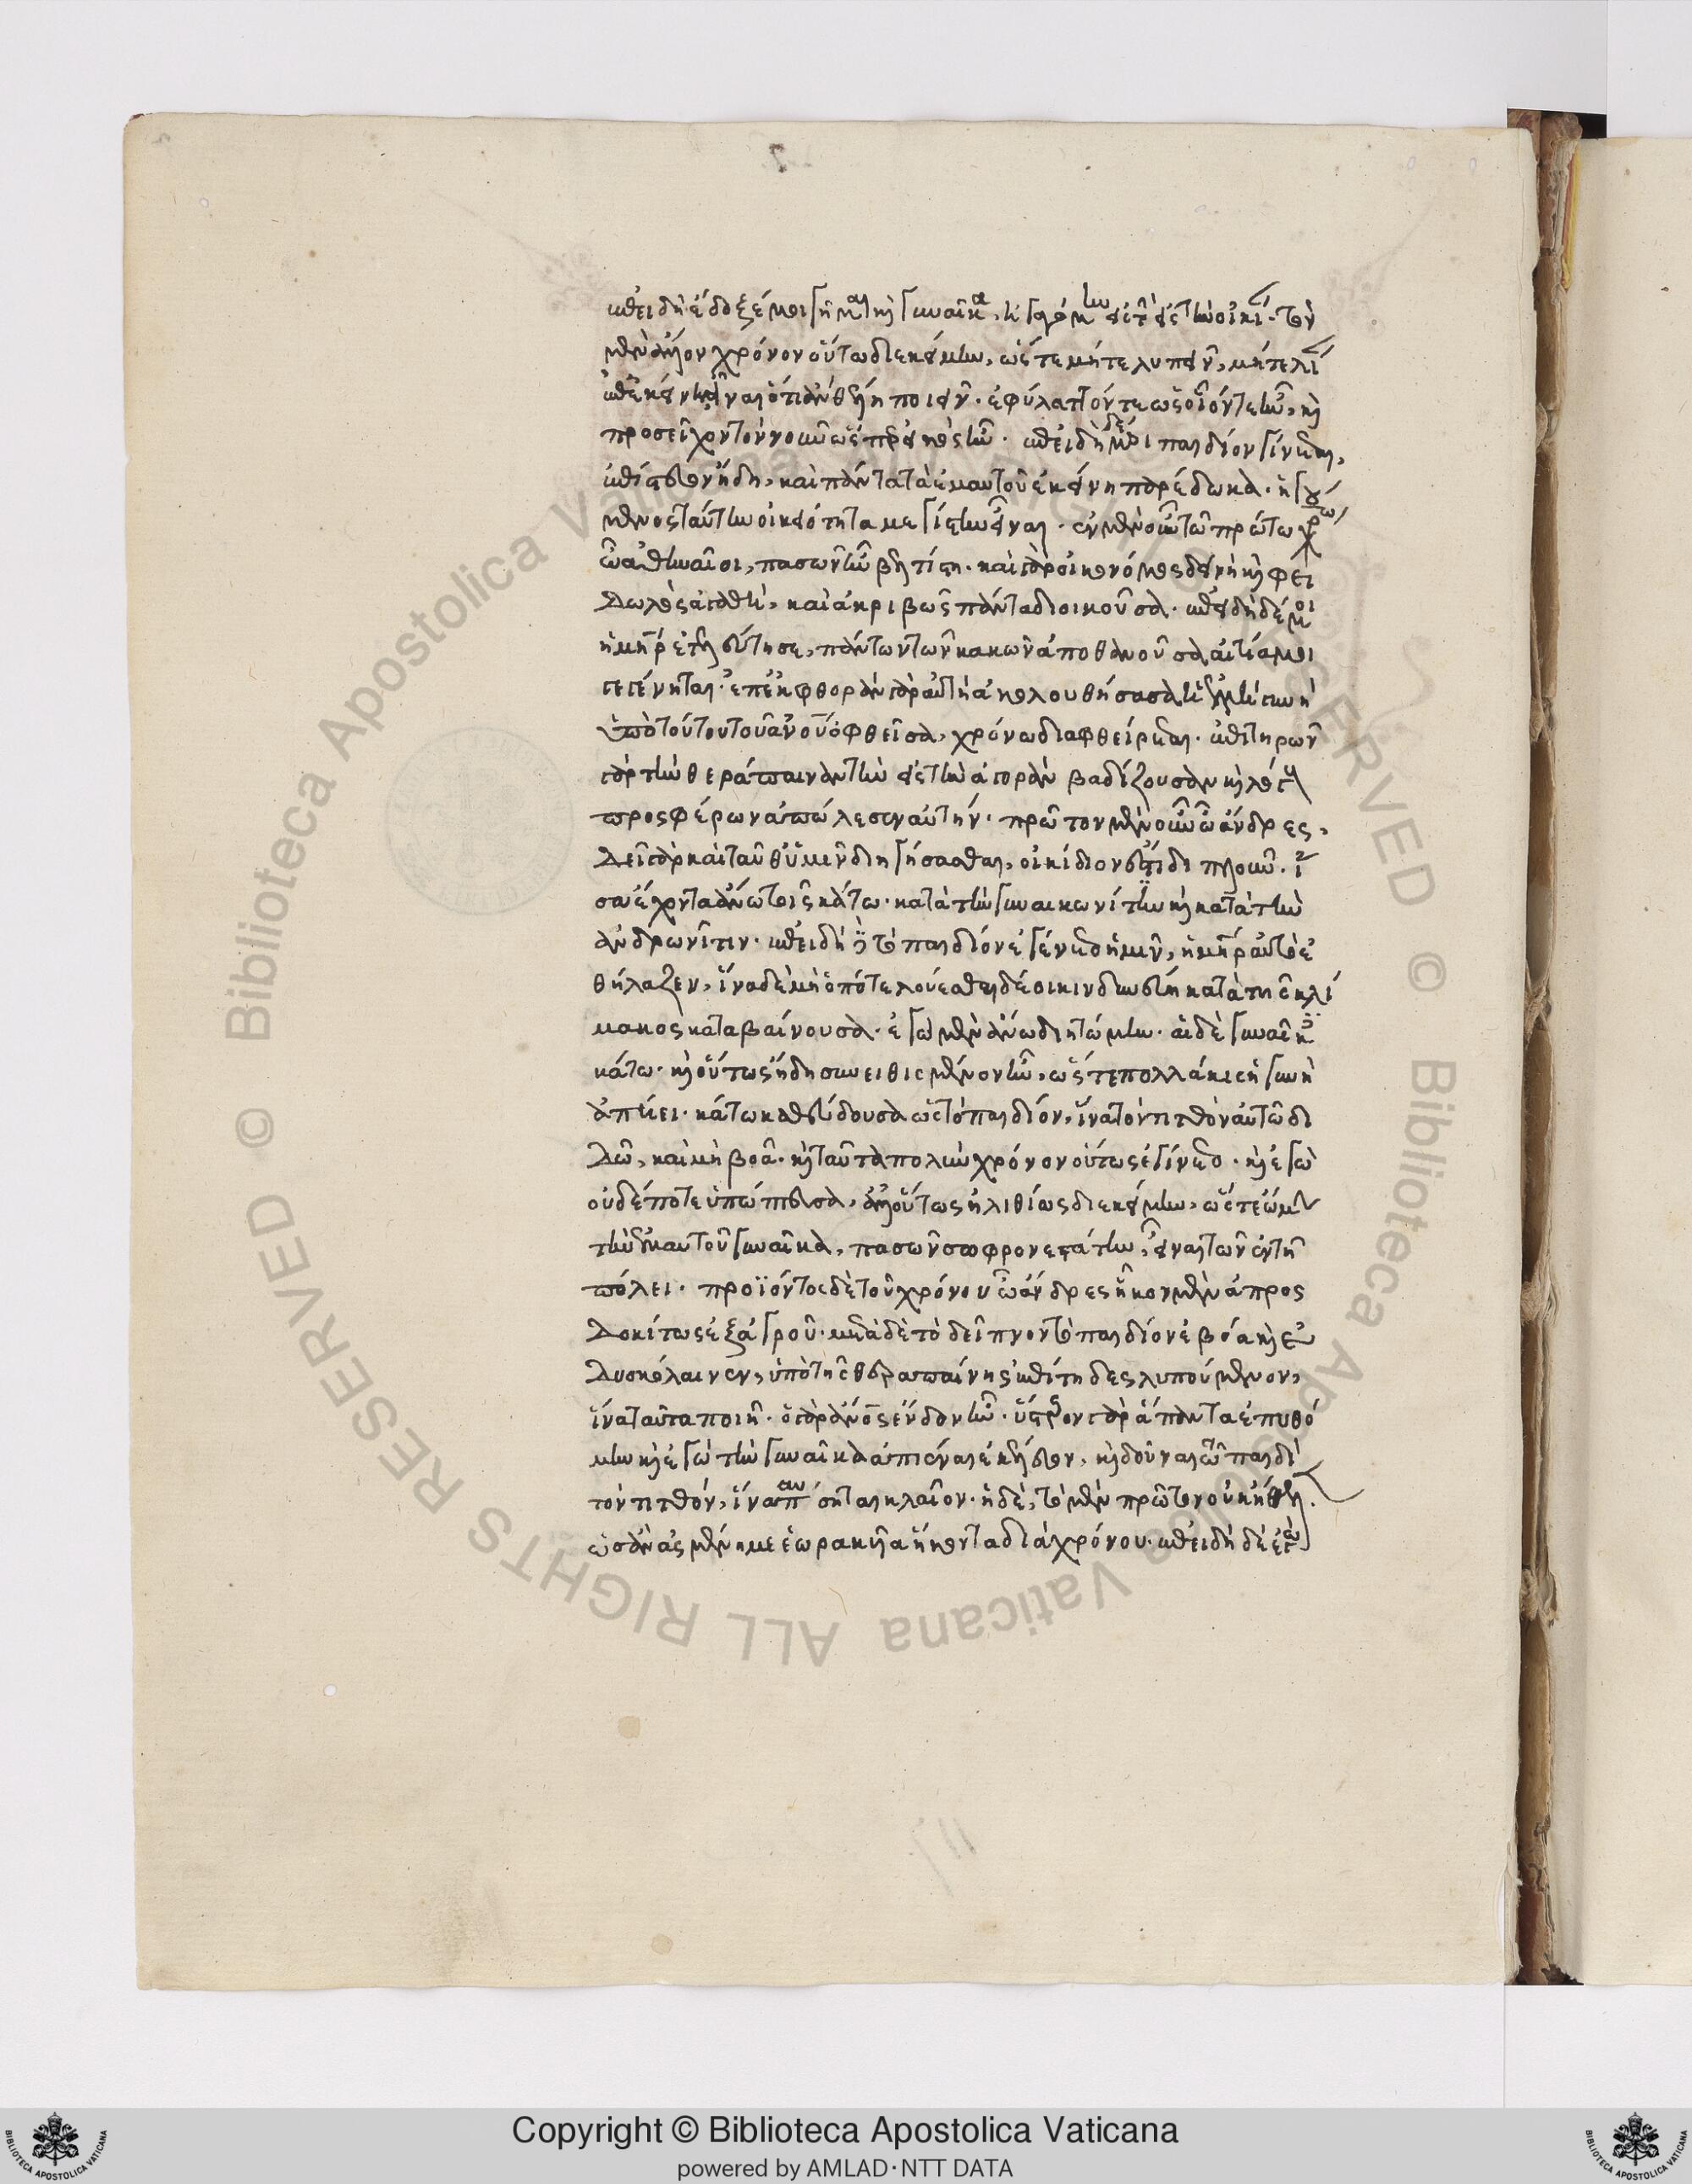 ἐπειδὴ ἔδοξέ μοι γῆμαι καὶ γυναῖκα ἠγαγόμην εἰς τὴν οἰκίαν. τὸν
μὲν ἄλλον χρόνον οὕτω διεκείμην, ὥστε μήτε λυπεῖν, μήτε λίαν
ἐπ' ἐκείνῃ εἶναι ὅτι ἂν θέλῃ ποιεῖν. ἐφύλαττόν τε ὡς οἷόν τε ἦν, καὶ
προσεῖχον τὸν νοῦν ὥσπερ εἰκὸς ἦν. ἐπειδὴ δέ μοι παιδίον γίνεται,
ἐπίστευον ἤδη, καὶ πάντα τὰ ἐμαυτοῦ ἐκείνῃ παρέδωκα. ἡγού
μενος ταύτην οἰκειότητα μεγίστην εἶναι. ἐν μὲν οὖν τῷ πρώτῳ χρόνῳ
ὦ ἀθηναῖοι, πασῶν ἦν βελτίστη. καὶ γὰρ οἰκονόμος δεινὴ καὶ φει
δωλὸς ἀγαθὴ, καὶ ἀκριβῶς πάντα διοικοῦσα. ἐπειδὴ δέ μοι
ἡ μήτηρ ἐτελεύτησε, πάντων τῶν κακῶν ἀποθανοῦσα αἰτία μοι
γεγένηται. ἐπ' ἐκφθορὰν γὰρ αὐτῇ ἀκολουθήσασα ἡ ἐμὴ γυνὴ
ὑπὸ τούτου τοῦ ἀνοῦ ὀφθεῖσα, χρόνῳ διαφθείρεται. ἐπιτηρῶν
γὰρ τὴν θεράπαιναν τὴν εἰς τὴν ἀγορὰν βαδίζουσαν καὶ λόγους
προσφέρων ἀπώλεσεν αὐτήν. πρῶτον μὲν οὖν ὦ ἄνδρες,
δεῖ γὰρ καὶ ταῦθ' ὑμῖν διηγήσασθαι, οἰκίδιον ἔστι μοι διπλοῦν. ἴ
σα ἔχον τὰ ἄνω τοῖς κάτω. κατὰ τὴν γυναικωνίτιν καὶ κατὰ τὴν
ἀνδρωνῖτιν. ἐπειδὴ δὲ τὸ παιδίον ἐγένετο ἡμῖν, ἡ μήτηρ αὐτὸ ἐ
θήλαζεν, ἵνα δὲ μὴ ὁπότε λούεσθαι δέοι κινδυνεύῃ κατὰ τῆς κλί
μακος καταβαίνουσα. ἐγὼ μὲν ἄνω διῃτώμην. αἱ δὲ γυναῖκες
κάτω. καὶ οὕτως ἤδη συνειθισμένον ἦν, ὥστε πολλάκις ἡ γυνὴ
ἀπῄει. κάτω καθεύδουσα ὡς τὸ παιδίον, ἵνα τὸν τιτθὸν αὐτῷ δι
δῷ, καὶ μὴ βοᾷ. καὶ ταῦτα πολὺν χρόνον οὕτως ἐγίνετο. καὶ ἐγὼ
οὐδέποτε ὑπώπτευσα, ἀλλ' οὕτως ἠλιθίως διεκείμην, ὥστε ᾤμην
τὴν ἐμαυτοῦ γυναῖκα, πασῶν σωφρονεστάτην εἶναι τῶν ἐν τῇ
πόλει. προϊόντος δὲ τοῦ χρόνου ὦ ἄνδρες ἧκον μὲν ἀπροσ
δοκήτως ἐξ ἀγροῦ. μετὰ δὲ τὸ δεῖπνον τὸ παιδίον ἐβόα καὶ ἐ
δυσκόλαινεν, ὑπὸ τῆς θεραπαίνης ἐπίτηδες λυπούμενον,
ἵνα ταῦτα ποιῇ. ὁ γὰρ ἄνος ἔνδον ἦν. ὕστερον γὰρ ἅπαντα ἐπυθό
μην καὶ ἐγὼ τὴν γυναῖκα ἀπιέναι ἐκέλευον, καὶ δοῦναι τῷ παιδίῳ
τὸν τιτθόν, ἵνα παύσηται κλαῖον. ἡ δὲ, τὸ μὲν πρῶτον οὐκ ἤθελεν.
ὡς ἂν ἀσμένη με ἑωρακυῖα ἥκοντα διὰ χρόνου. ἐπειδὴ δὲ ἐγὼ